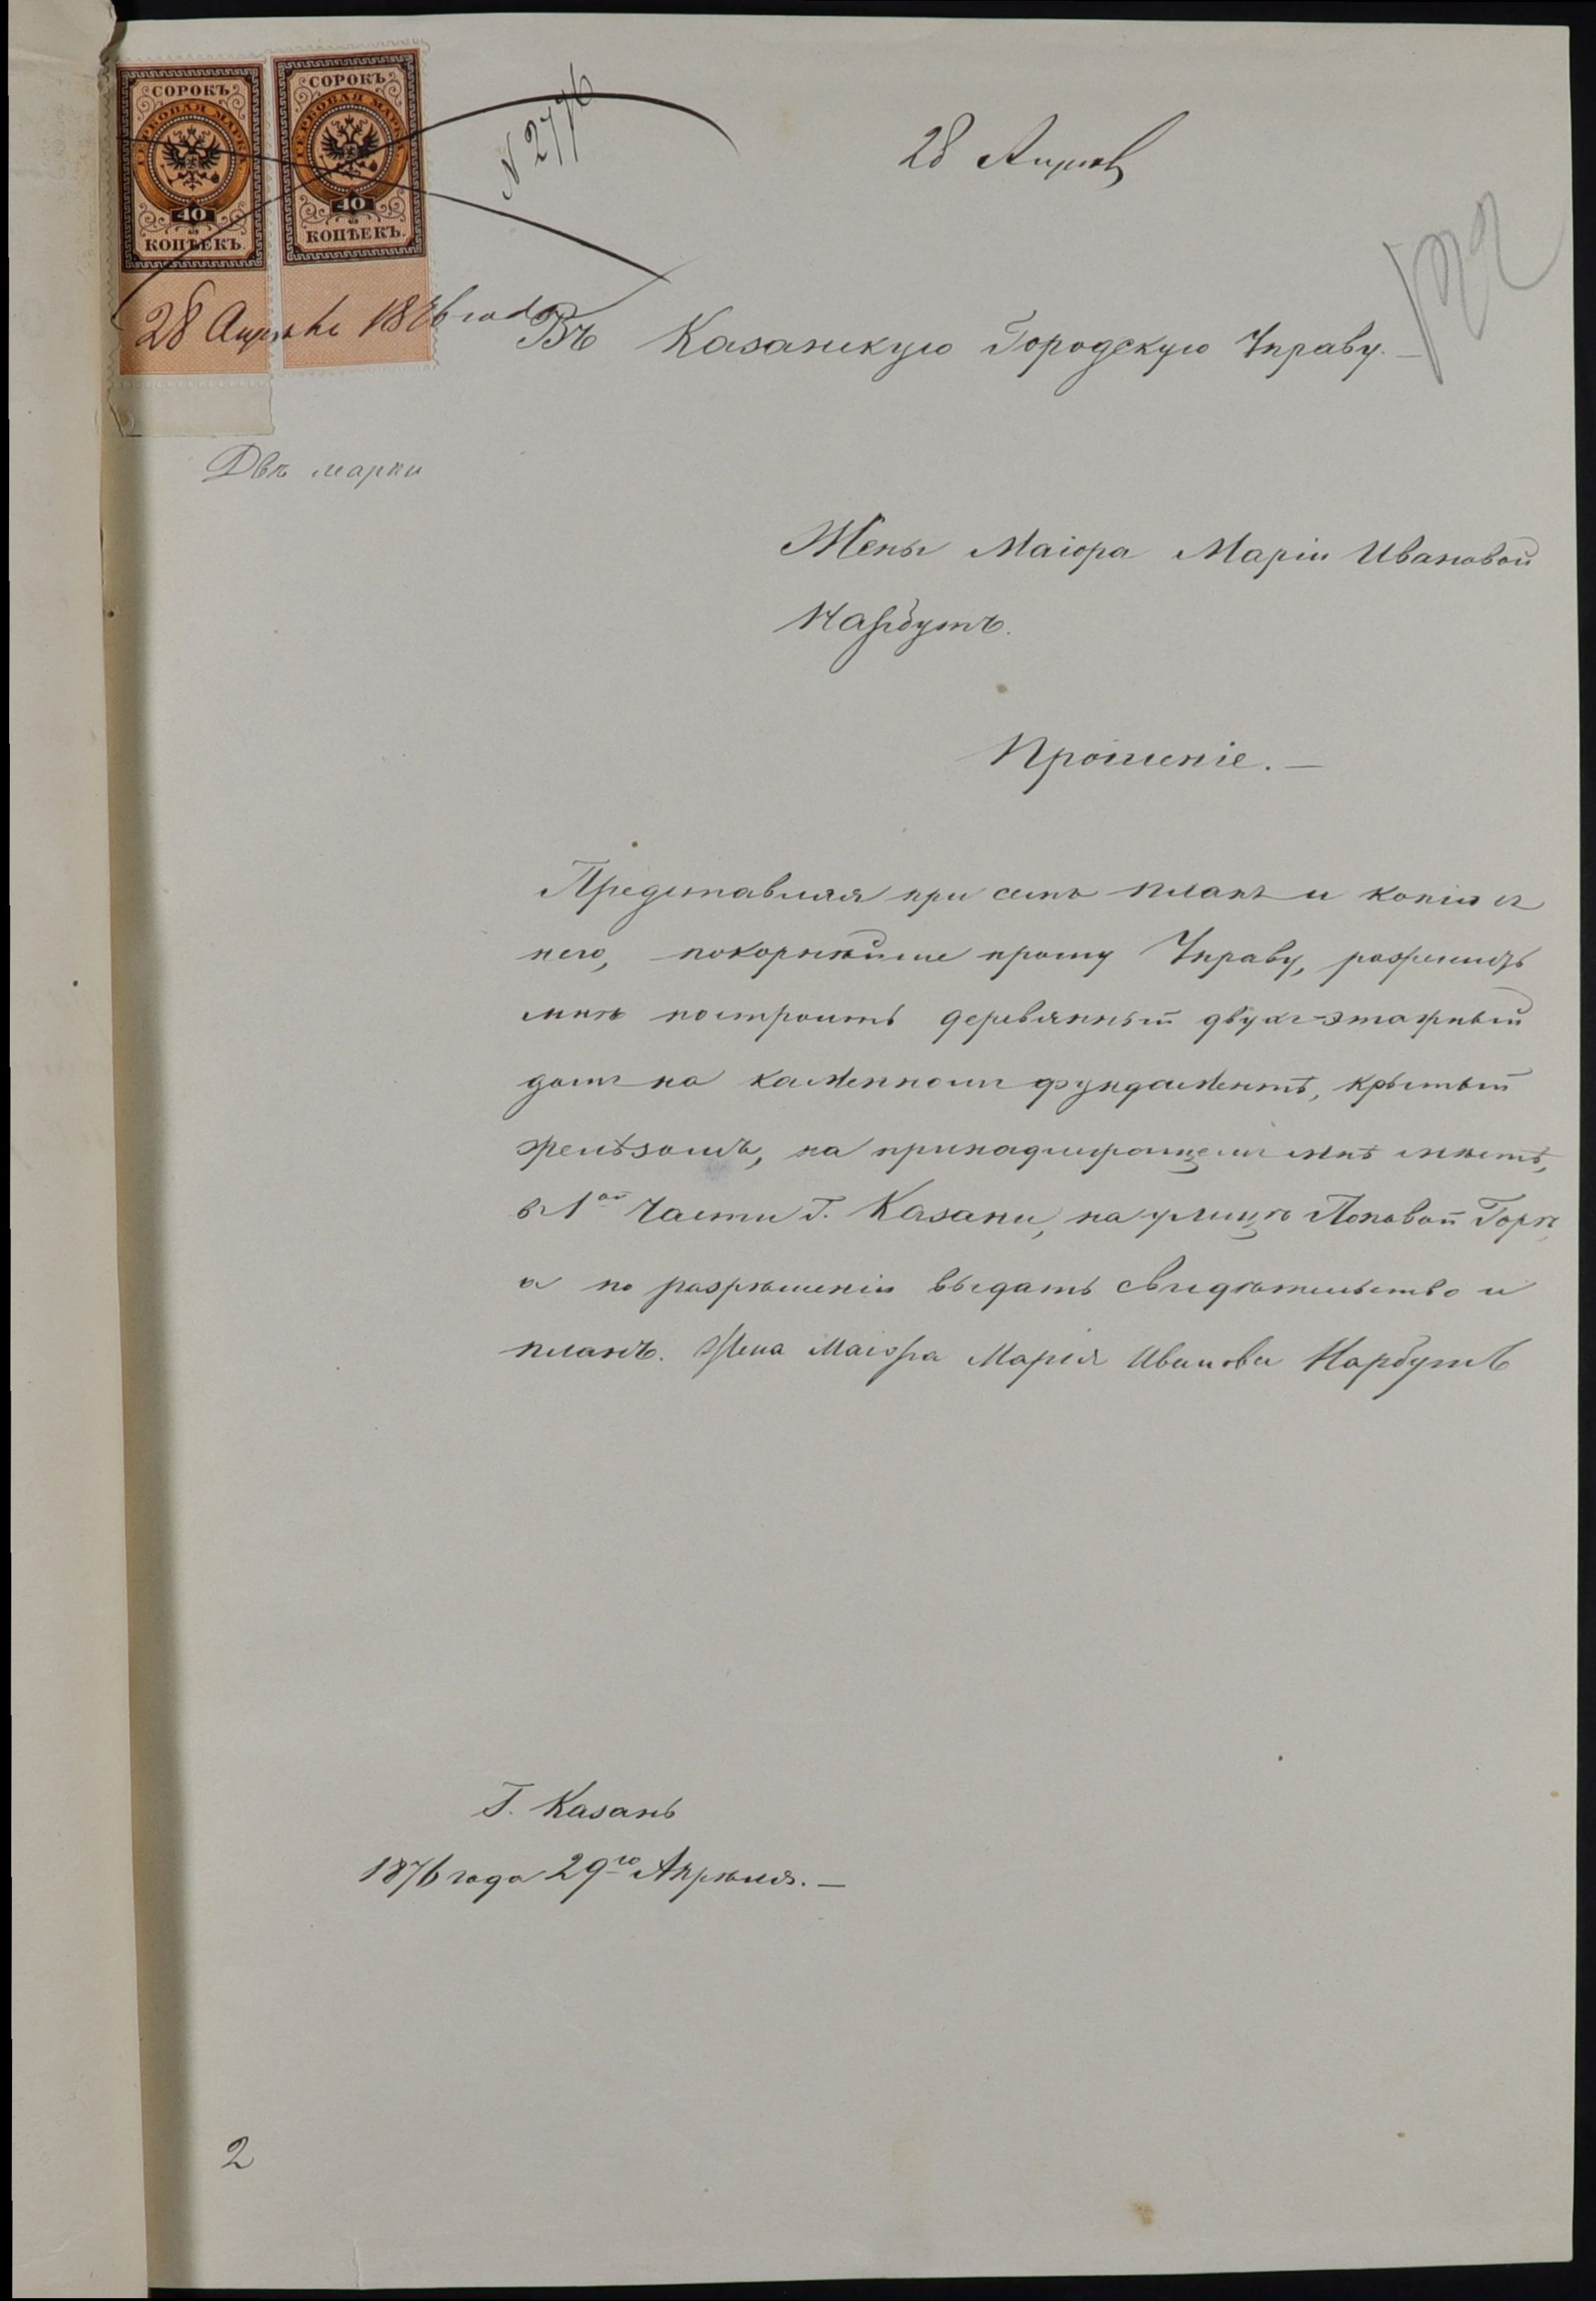 СОРОКЪ
ГЕРБОВАЯ МАРКА
40
КОПѢЕКЪ.
СОРОКЪ
ГЕРБОВАЯ МАРКА
40
КОПѢЕКЪ.
28 Апрѣля 1876 года
N 2776
28 Апрѣля
172
Въ Казанскую Городскую Управу.—
Двѣ марки
Жены Маіора Маріи Ивановой
Нарбутъ.
Прошеніе.—
Представляя при семъ планъ и копію съ
него, покорнѣйше прошу Управу, разрешить
мнѣ построить деревянный двухъ-этажный
домъ на каменномъ фундаментѣ, крытый
желѣзомъ, на принадлежащемъ мнѣ мѣстѣ,
въ 1ой Части Г. Казани, на улицѣ Поповой Горѣ,
и по разрѣшеніи выдать свидѣтельство и
планъ. Жена Маіора Марія Иванова Нарбутъ
Г. Казань
1876 года 29го Апрѣля.—
2